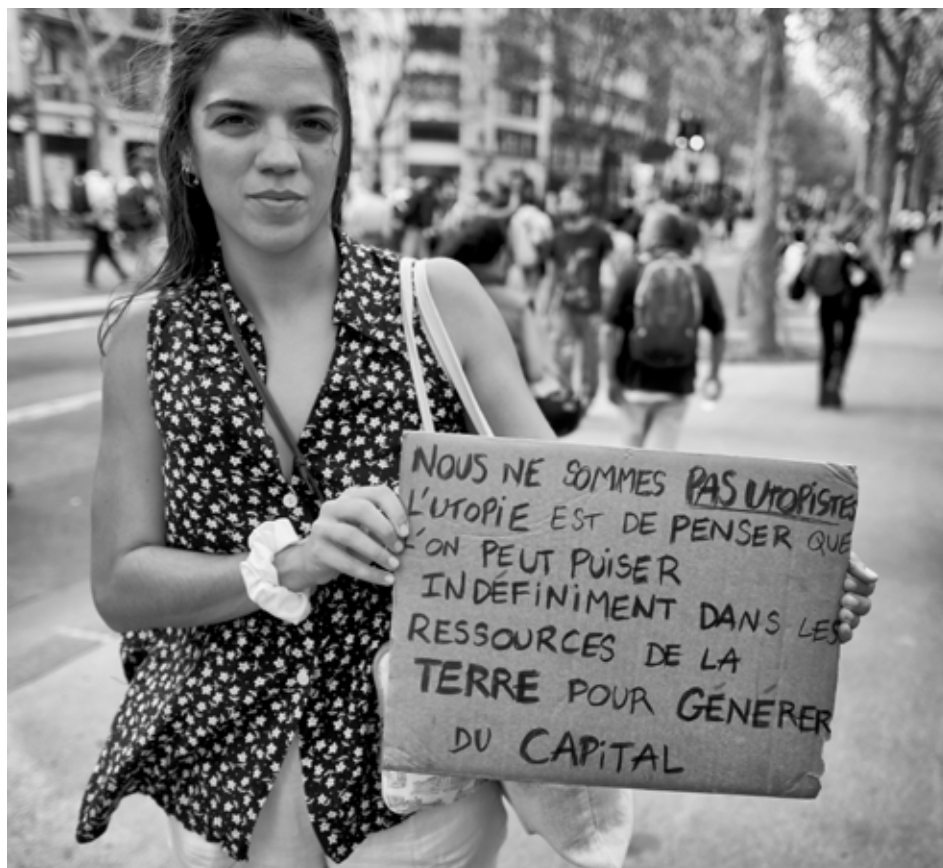 NOUS NE SOMMES PAS UTOPISTES
L'UTOPIE EST DE PENSER QUE
L'ON PEUT PUISER
INDÉFINIMENT DANS LES
RESSOURCES DE LA
TERRE POUR GÉNÉRER
DU CAPITAL